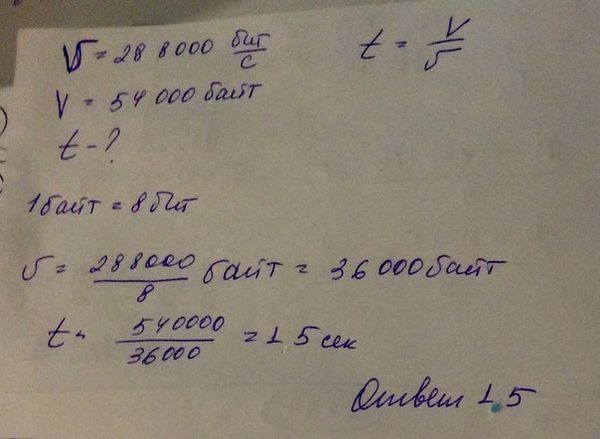 υ = 288000 бит/с t = V/υ
V = 54000 байт
t - ?
1 байт = 8 бит
υ = 288000/8 байт = 36000 байт
t - 540000/36000 = 15 сек
Ответ 1.5